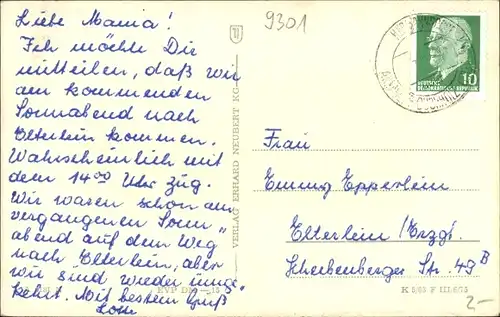 Liebe Mama!
Ich möchte Dir
mitteilen, daß wir
am kommenden
Sonnabend nach
Elterlein kommen.
Wahrscheinlich mit
dem 14⁰⁰ Uhr Zug.
Wir waren schon am
vergangenen Sonn„
abend auf dem Weg
nach Elterlein, aber
wir sind wieder umge„
kehrt. Mit bestem Gruß
9301
VERLAG ERHARD NEUBERT KG
10
Frau
Emmy Epperlein
Elterlein /Erzg.
Scheibenberger Str. 49 B
EVP DM -,15
2-